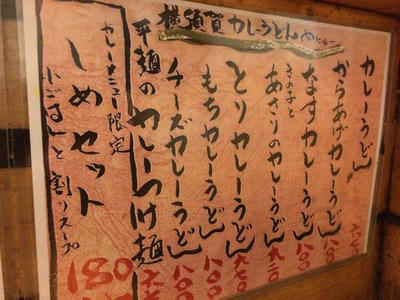 横須賀カレーうどんめにゅー
カレーうどん 六七〇
からあげカレーうどん
なすカレーうどん
きのこと
あさりのカレーうどん
とりカレーうどん
もちカレーうどん 八〇〇
チーズカレーうどん 八〇〇
平麺のカレーつけ麺
カレーメニュー限定
しめセット
小ごはんと割りスープ
180